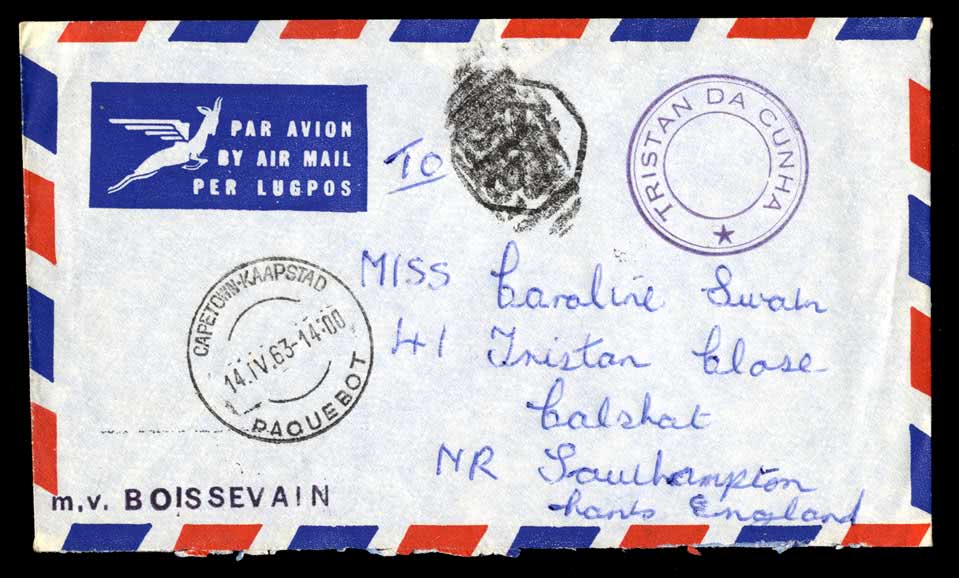 PAR AVION
BY AIR MAIL
PER LUGPOS
TO
TRISTAN DA CUNHA
CAPETOWN-KAAPSTAD
14.IV.63-14:00
PAQUEBOT
MISS Caroline Swain
41 Tristan Close
Calshot
NR Southampton
hants England
m.v. BOISSEVAIN